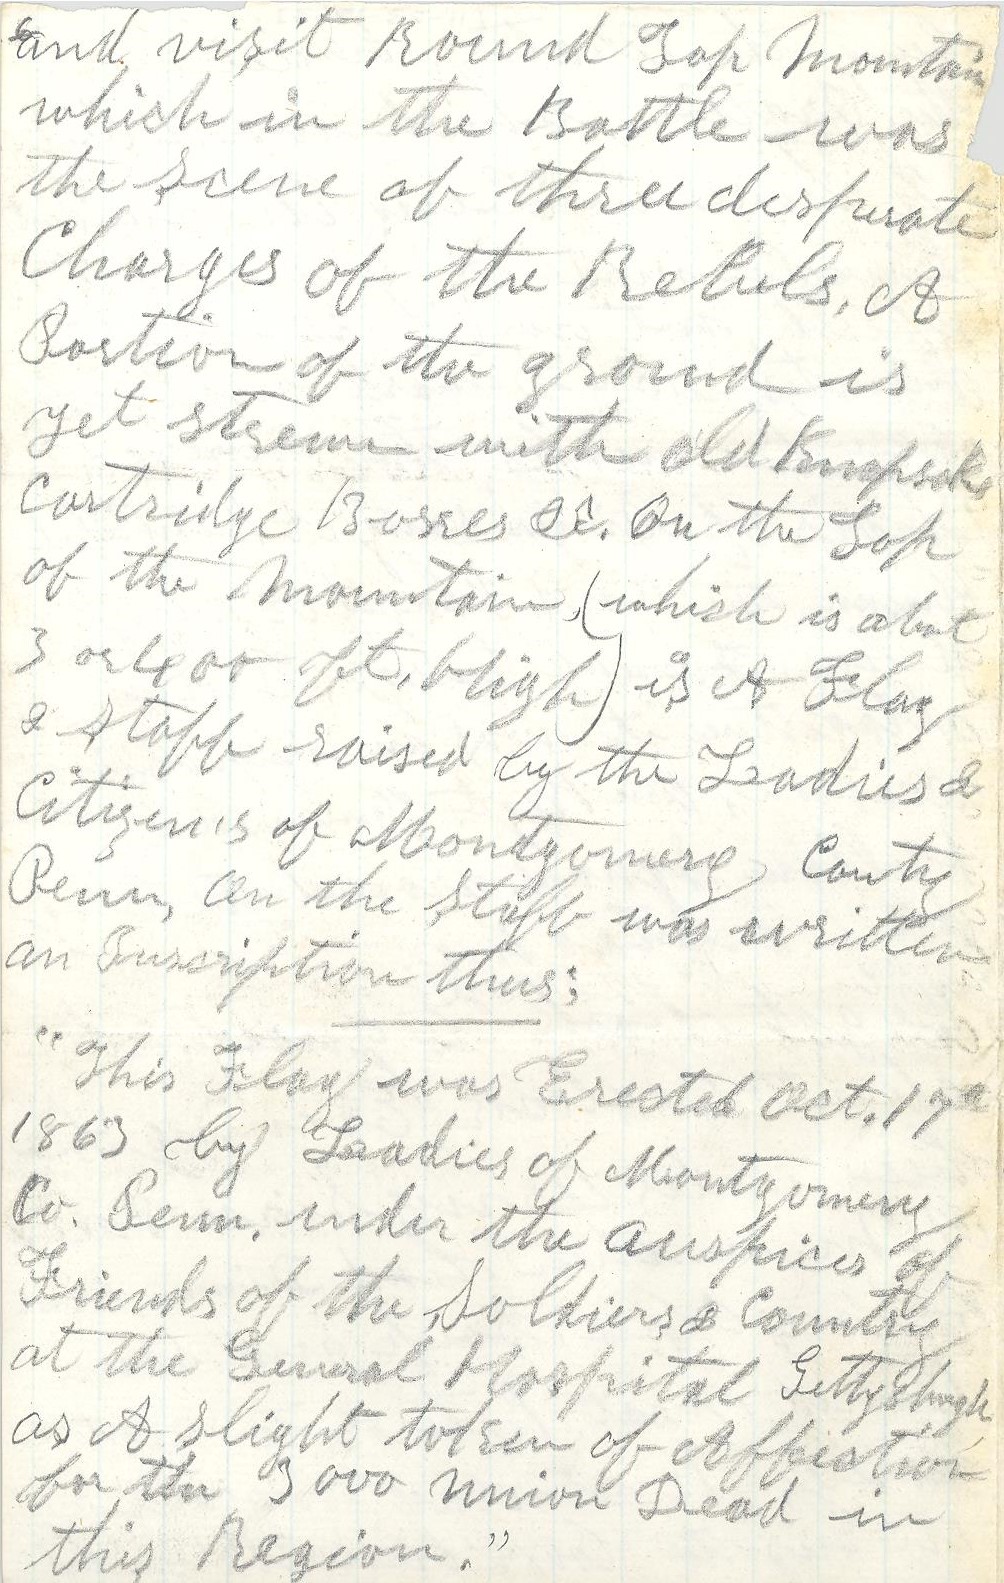 and visit Round Top Mountain
which in the Battle was
the scene of three desperate
Charges of the Rebels. A
Portion of the ground is
yet strewn with old Knapsaks
Cartridge Boxes &c. On the Top
of the Mountain, (which is about
3 or 400 ft. High) is A Flag
& Staff raised by the Ladies &
Citizens of Montgomery County
Penn, On the Staff was written
an Inscription thus:
"This Flag was Erected Oct. 17th
1863 by Ladies of Montgomery
Co. Penn. under the auspices of
Friends of the Soldiers & Country
at the General Hospital Gettysburgh,
as A slight token of Affection
for the 3000 Union Dead in
this Region."